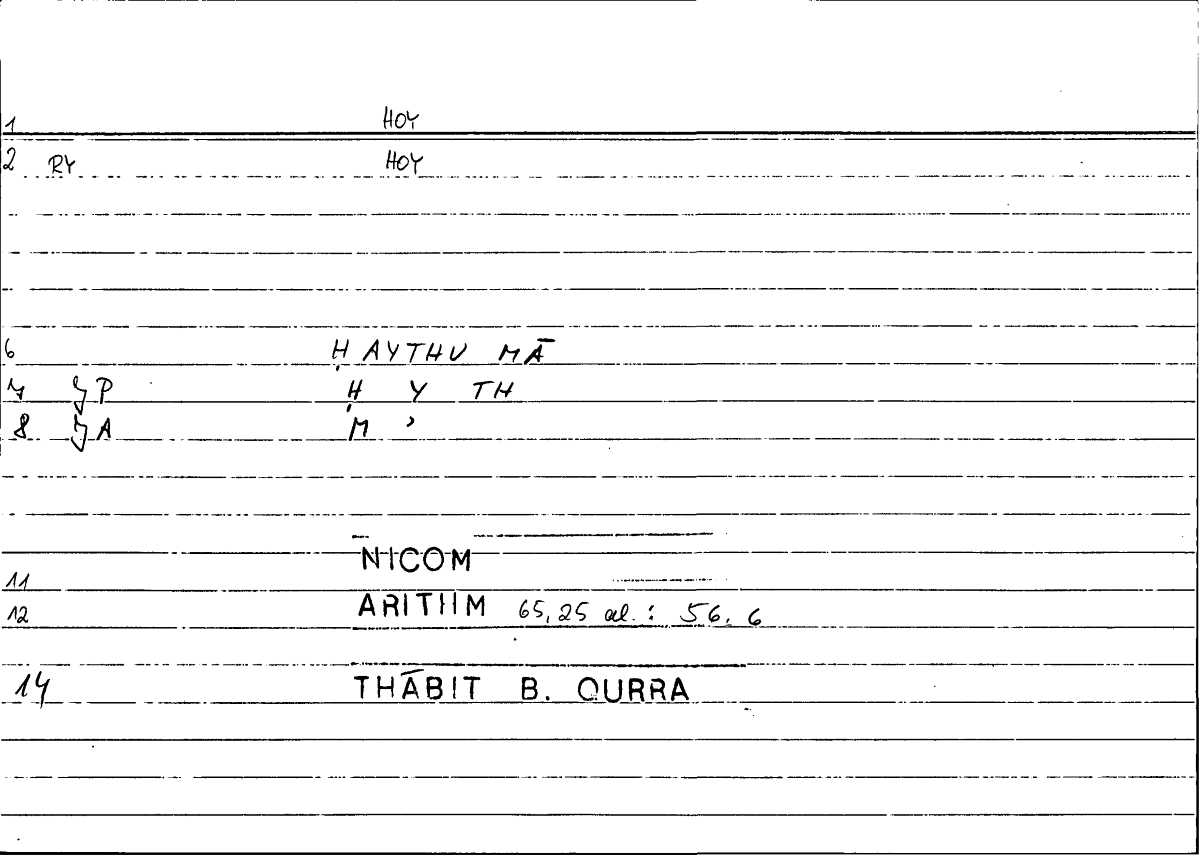 1 HOY
2 RY HOY
6 ḤAYTHU MĀ
7 P Ḥ Y TH
8 A M ʾ
NICOM
11
12 ARITHM 65,25 al.: 56.6
14 THĀBIT B. QURRA